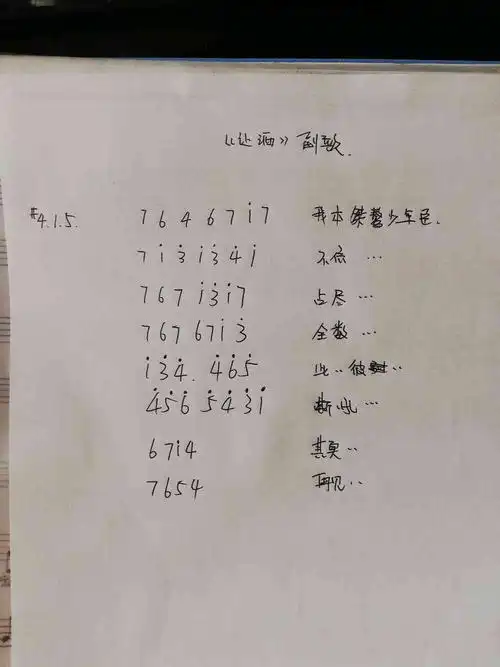 《让酒》副歌.
#4.1.5. 7 6 4 6 7 i̇ 7 我本桀骜少年臣.
7 i̇ 3̇ i̇ 3̇ 4̇ i̇ 不信 …
7 6 7 i̇ 3̇ i̇ 7 占尽 …
7 6 7 6 7 i̇ 3̇ 全数 …
i̇ 3̇ 4̇. 4̇ 6̇ 5̇ 此..彼..
4̇ 5̇ 6̇ 5̇ 4̇ 3̇ i̇ 嘶吼 …
6 7 i̇ 4 莫..
7 6 5 4 再见..